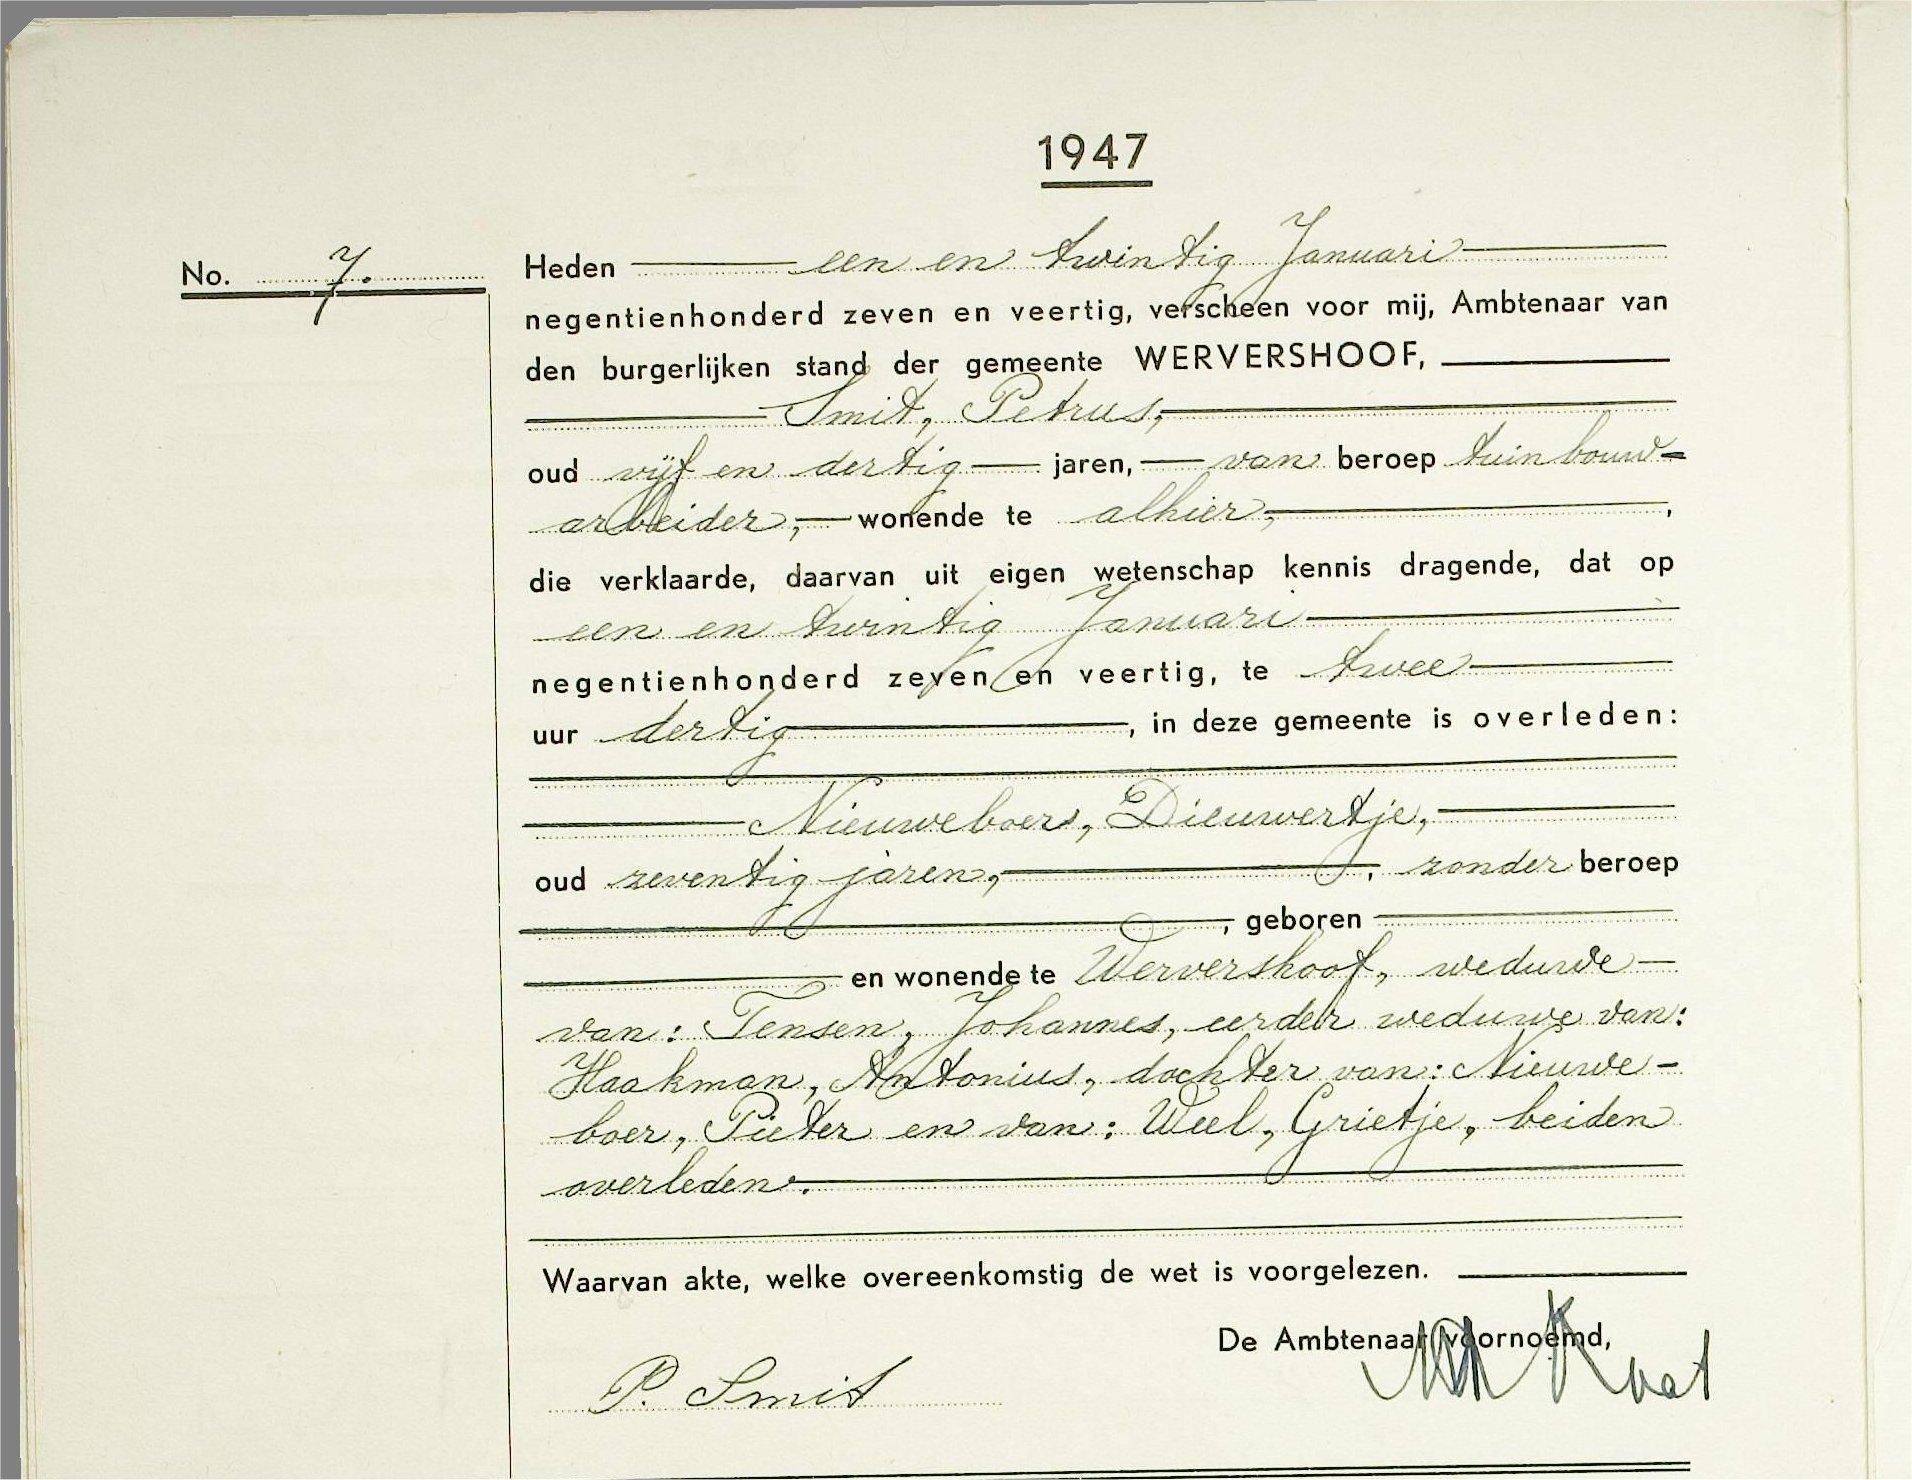 1947
No. 7.
Heden een en twintig Januari
negentienhonderd zeven en veertig, verscheen voor mij, Ambtenaar van
den burgerlijken stand der gemeente WERVERSHOOF,
Smit, Petrus,
oud vijf en dertig jaren, van beroep tuinbouw=
arbeider, wonende te alhier,,
die verklaarde, daarvan uit eigen wetenschap kennis dragende, dat op
een en twintig Januari
negentienhonderd zeven en veertig, te twee
uur dertig, in deze gemeente is overleden:
Nieuweboer, Dieuwertje,
oud zeventig jaren,, zonder beroep
, geboren
en wonende te Wervershoof, weduwe
van: Tensen, Johannes, eerder weduwe van:
Haakman, Antonius, dochter van: Nieuwe-
boer, Pieter en van: Weel, Grietje, beiden
overleden.
Waarvan akte, welke overeenkomstig de wet is voorgelezen.
De Ambtenaar voornoemd,
P. Smit